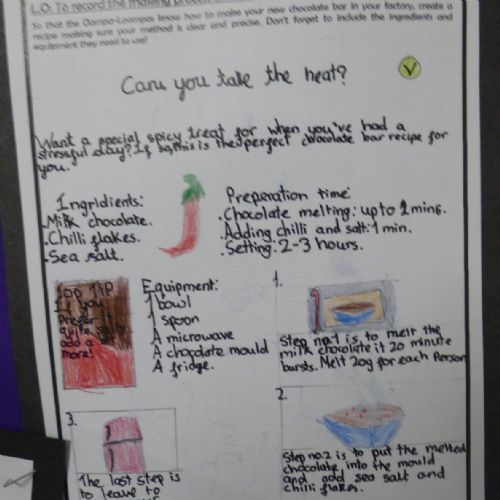 L.O: To record the making process
So that the Oompa-Loompas know how to make your new chocolate bar in your factory, create a
recipe making sure your method is clear and precise. Don't forget to include the ingredients and
equipment they need to use!
Can you take the heat?
Want a special spicy treat for when you've had a
stressful day? If so, this is the perfect chocolate bar recipe for
you.
Ingridients:
.Milk chocolate.
.Chilli flakes.
.Sea salt.
Preperation time:
.Chocolate melting: up to 2 mins.
.Adding chilli and salt: 1 min.
.Setting: 2-3 hours.
Top Tip
If you
add a
more!
Equipment:
1 bowl
1 spoon
A microwave
A chocolate mould
A fridge.
1.
Step no.1 is to melt the
milk chocolate it 20 minute
bursts. Melt 20g for each person
2.
Step no.2 is to put the melted
chocolate into the mould
and add sea salt and
chilli flakes.
3.
The last step is
to leave to